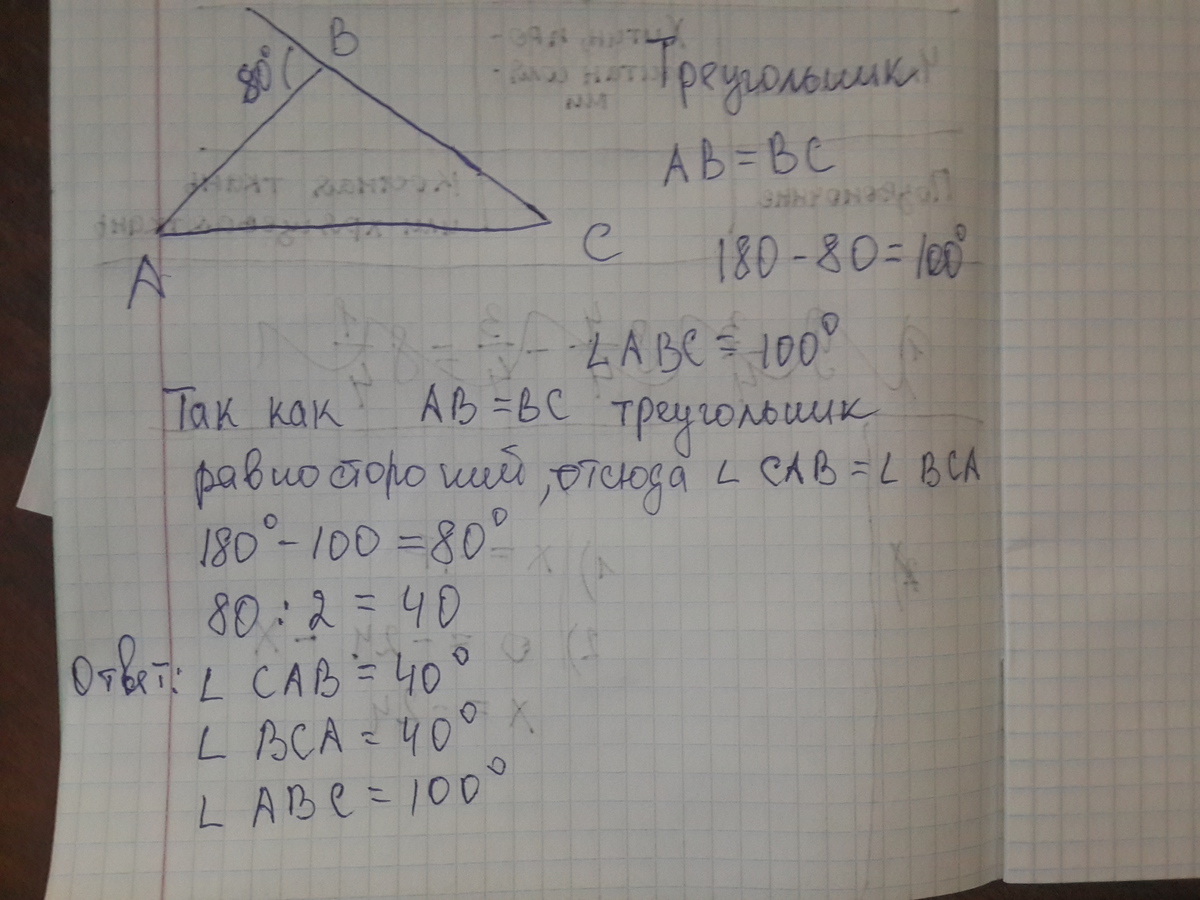 80°
B
A
C
Треугольник
AB = BC
180 - 80 = 100°
∠ABC = 100°
Так как AB = BC треугольник
равносторонний, отсюда ∠ CAB = ∠ BCA
180° - 100 = 80°
80 : 2 = 40
Ответ: ∠ CAB = 40°
∠ BCA = 40°
∠ ABC = 100°